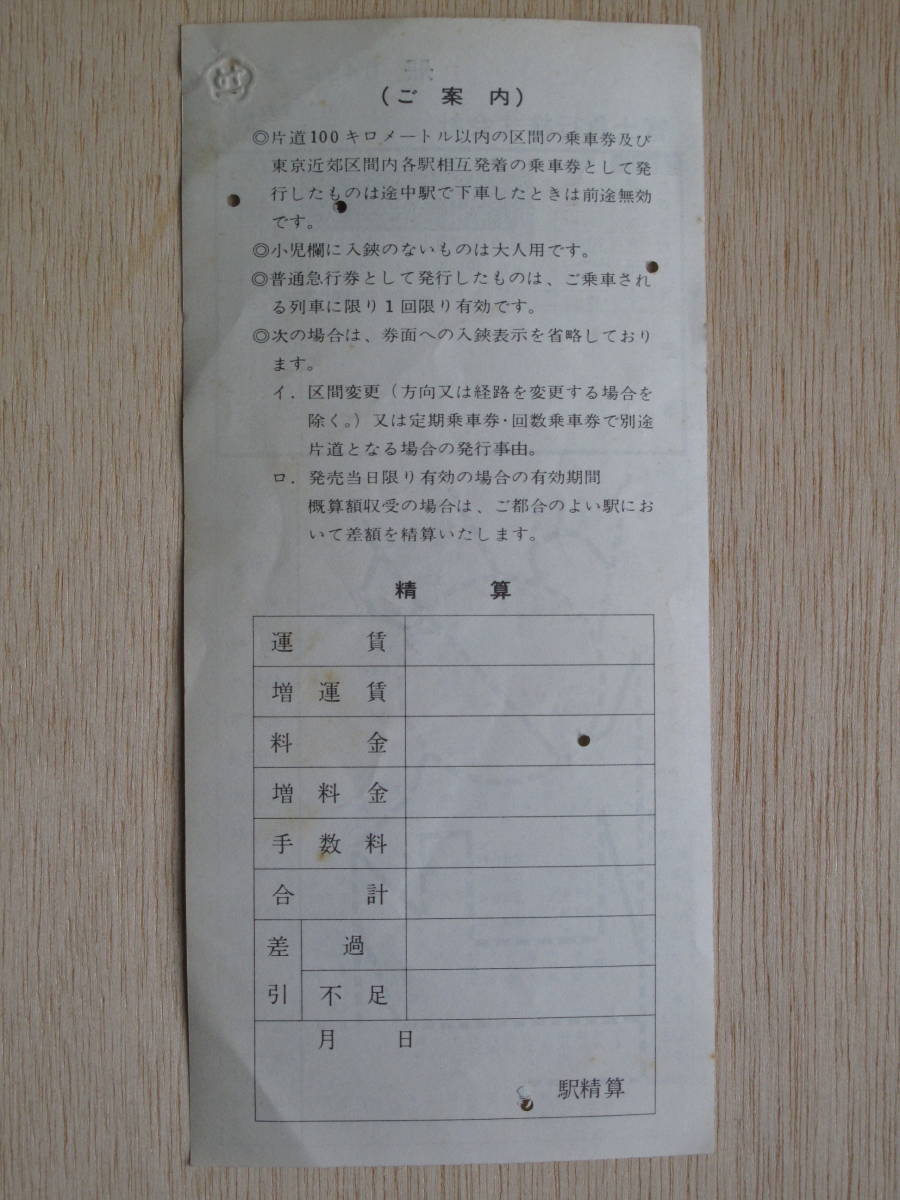 (ご案内)
◎片道100キロメートル以内の区間の乗車券及び
東京近郊区間内各駅相互発着の乗車券として発
行したものは途中駅で下車したときは前途無効
です。
◎小児欄に入鋏のないものは大人用です。
◎普通急行券として発行したものは、ご乗車され
る列車に限り1回限り有効です。
◎次の場合は、券面への入鋏表示を省略しており
ます。
イ．区間変更（方向又は経路を変更する場合を
除く。）又は定期乗車券・回数乗車券で別途
片道となる場合の発行事由。
ロ．発売当日限り有効の場合の有効期間
概算額収受の場合は、ご都合のよい駅にお
いて差額を精算いたします。
精算
運賃
増運賃
料金
増料金
手数料
合計
差引 過
不足
月 日
駅精算